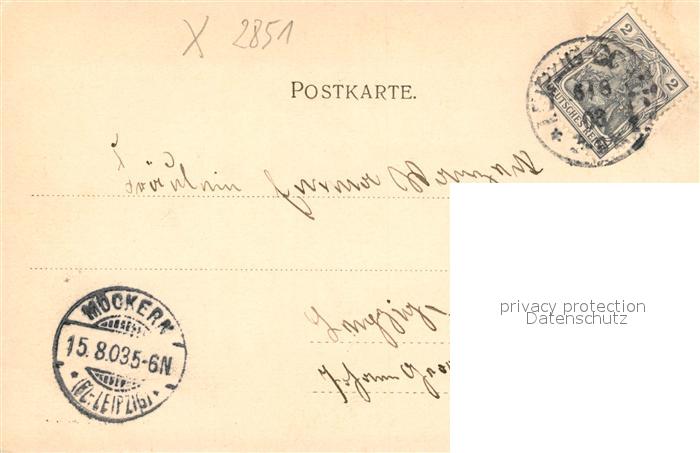 X 2851
2
2
DEUTSCHES REICH
POSTKARTE.
Fräulein Emma
privacy protection
Datenschutz
MOCKERN
15.8.03 5-6N
* (BZ. LEIPZIG) *
Leipzig,
Johann